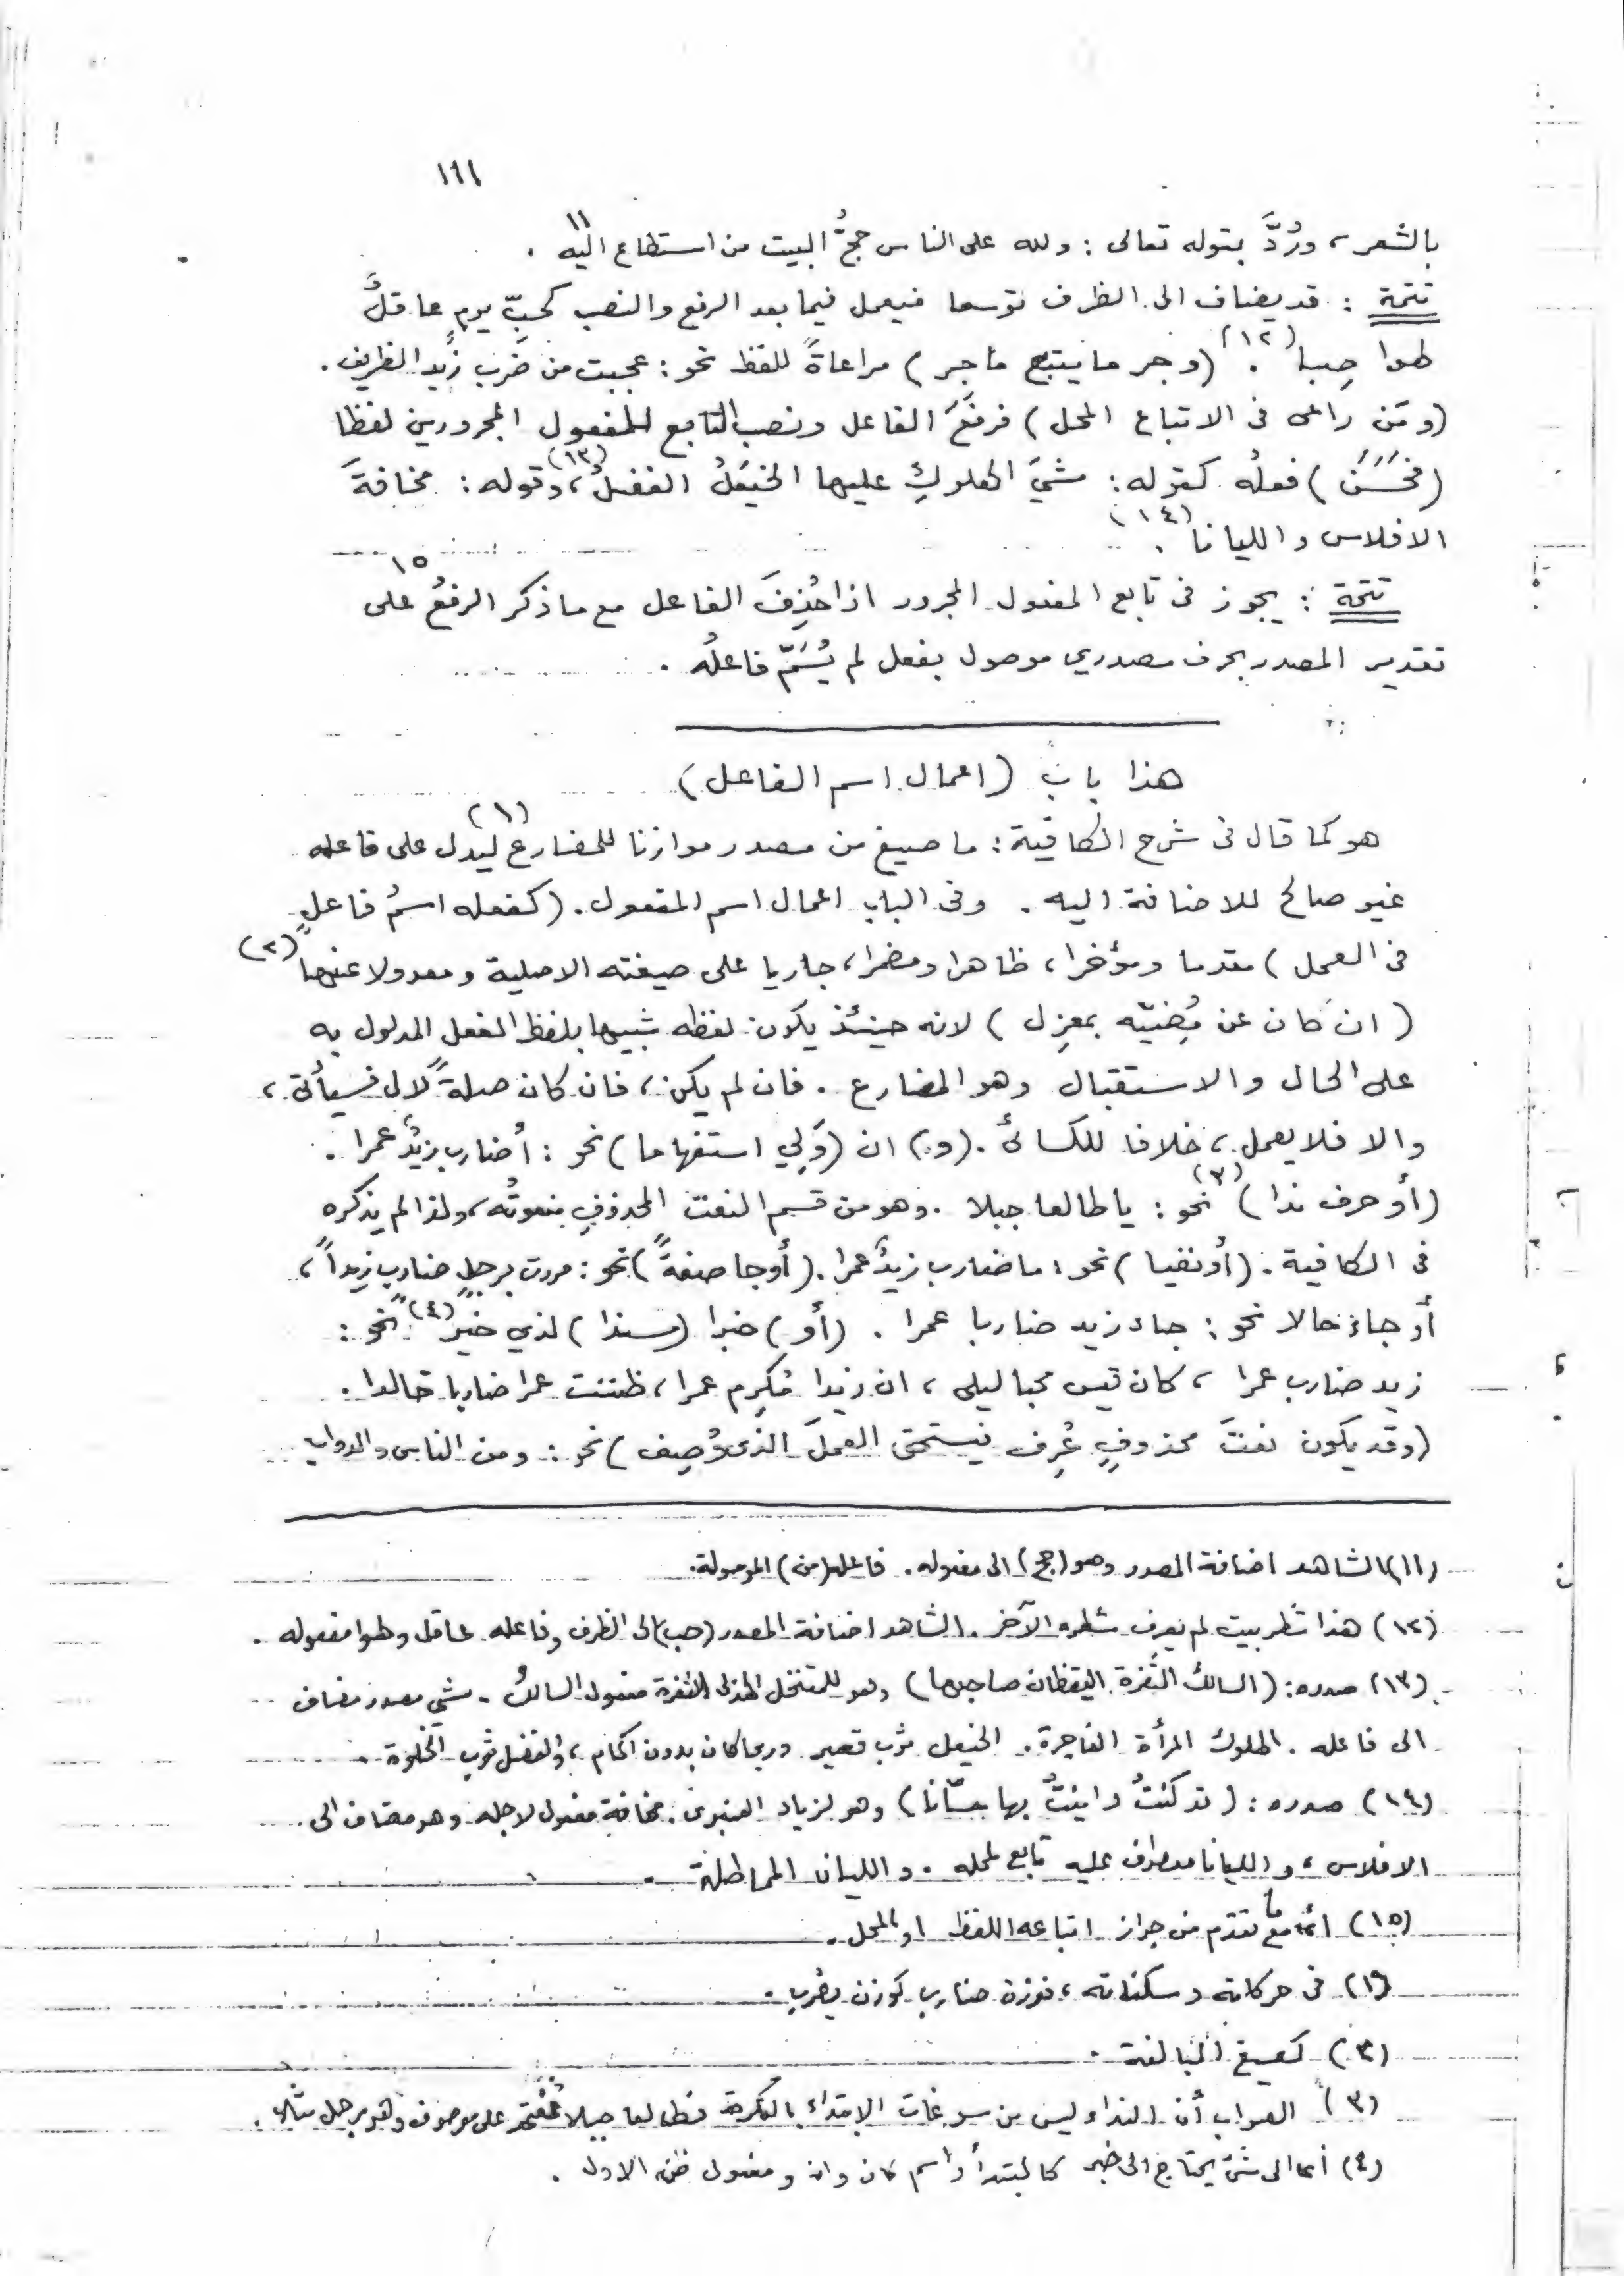 ١٦١
بالشعر، ورُدَّ بقوله تعالى : ولله على الناس حجُّ البيت من استطاع اليه ١١ .
تتمة : قد يضاف الى الظرف توسعا فيعمل فيما بعد الرفع والنصب كحبِّ يومٍ عاقلٌ
لهوا صِبا (١٢) . (وجر ما يتبع ما جر ) مراعاةً للفظ نحو : عجبت من ضَرب زيدٍ الظريف .
(ومَن راعى في الاتباع المحل ) فرفَعَ الفاعل ونصب التابع للمفعول المجرورين لفظا
(فحَسَنَ ) فعلُه كقوله : مشيَ الهلوكِ عليها الخيعَلُ الفضلُ (١٣)، وقوله : مخافةَ
الافلاس والليانا (١٤) .
تتمة : يجوز في تابع المفعول المجرور اذا حُذِفَ الفاعل مع ما ذكر ١٥ الرفعُ على
تقدير المصدر بحرف مصدري موصول بفعل لم يُسَمَّ فاعلُه .
هذا باب (اعمال اسم الفاعل)
هو كما قال في شرح الكافية : ما صيغ من مصدر موازنا للمضارع (١) ليدل على فاعله
غير صالح للاضافة اليه . وفي الباب اعمال اسم المفعول . (كفعله اسمُ فاعلٍ
في العمل ) مقدما ومؤخرا ، ظاهرا ومضمرا ، جاريا على صيغته الاصلية ومعدولا عنها (٢)
( ان كان عن مُضيّه بمعزِل ) لانه حينئذ يكون لفظه شبيها بلفظ الفعل المدلول به
على الحال والاستقبال وهو المضارع . فان لم يكن ، فان كان صلةً لال فسيأتي ،
والا فلا يعمل ، خلافا للكسائي . (و) ان (وَلِي استفهاما ) نحو : أضارب زيدٌ عمرا .
(أو حرف ندا ) (٣) نحو : يا طالعا جبلا . وهو من قسم النعت المحذوفِ منعوتُه ، ولذا لم يذكره
في الكافية . (أو نفيا ) نحو : ما ضارب زيدٌ عمرا . (أو جا صفةً ) نحو : مررت برجلٍ ضاربٍ زيداً ،
أو جاء حالا نحو : جاء زيد ضاربا عمرا . (أو ) خبرا (مسندا ) لذي خبرٍ (٤) نحو :
زيد ضارب عمرا ، كان قيس محبا ليلى ، ان زيدا مُكرِم عمرا ، ظننت عمرا ضاربا خالدا .
(وقد يكون نعتَ محذوفٍ عُرِف فيستحق العملَ الذى وُصِف ) نحو : ومن الناس والدواب
(١١) الشاهد اضافة المصدر وهو (حج) الى مفعوله . فاعله (من ) الموصولة .
(١٢) هذا شطر بيت لم يعرف شطره الآخر . الشاهد اضافة المصدر (حب) الى الظرف وفاعله عاقل ولهوا مفعوله .
(١٣) صدره : (السالكُ الثغرة اليقظان صاحبها ) وهو للمتنخل الهذلي الثغرة مفعول السالك - مشي مصدر مضاف
الى فاعله . الهلوك المرأة الفاجرة . الخيعل ثوب قصير وربما كان بدون اكمام ، والفضل ثوب الخلوة .
(١٤) صدره : (قد كنتُ داينتُ بها حسّانا) وهو لزياد العنبرى . مخافة مفعول لاجله وهو مضاف الى
الافلاس ، والليانا معطوف عليه تابع لمحله . والليان المماطلة .
(١٥) أي مع ما تقدم من جواز اتباعه اللفظ او المحل .
(١) في حركاته وسكناته ، فوزن ضارب كوزن يضرب .
(٢) كصيغ المبالغة .
(٣) الصواب أن النداء ليس من سوغات الابتداء بالنكرة فطالعا جبلا معتمد على موصوف وهو رجل مثلا .
(٤) أي الى شئ يحتاج الى خبر كالمبتدأ واسم كان وان ومفعول ظن الاول .